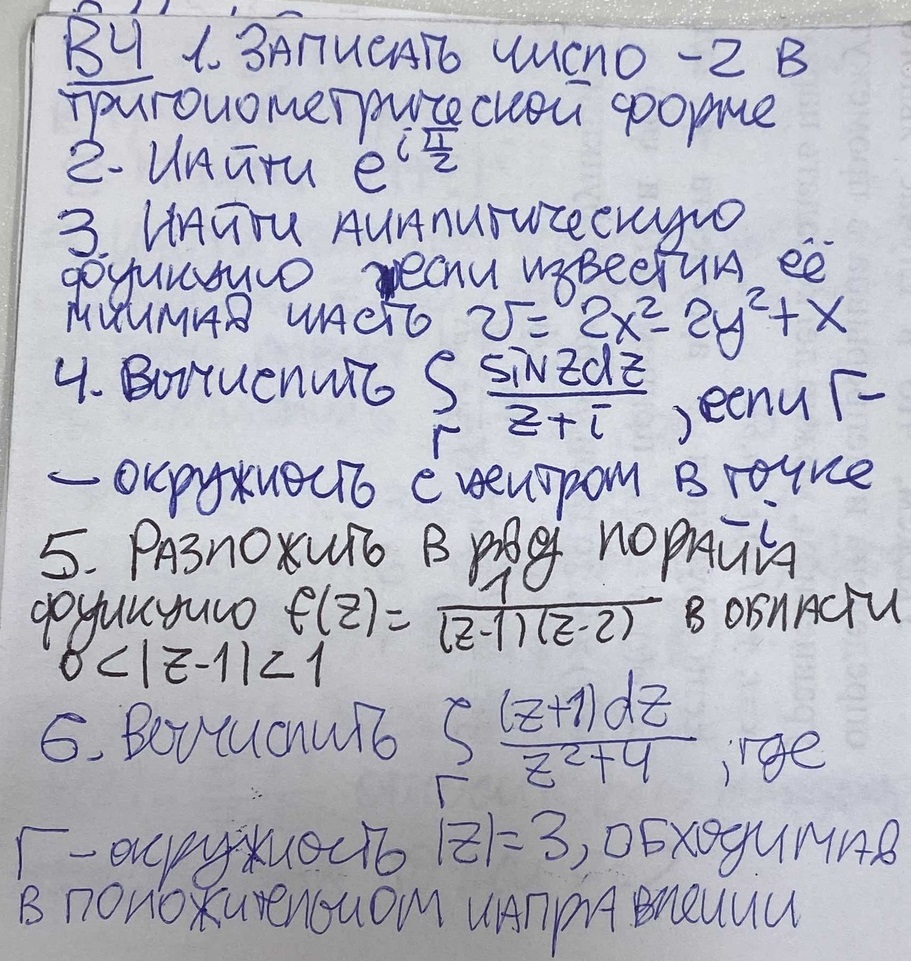 В4 1. Записать число -2 в
тригонометрической форме
2. Найти e^{i π/2}
3. Найти аналитическую
функцию если известна её
мнимая часть v = 2x² - 2y² + x
4. Вычислить ∫_Γ sin z dz / (z + i), если Γ -
- окружность с центром в точке
-i
5. Разложить в ряд Лорана
функцию f(z) = 1 / ((z-1)(z-2)) в области
0 < |z-1| < 1
6. Вычислить ∫_Γ (z+1)dz / (z²+4), где
Γ - окружность |z| = 3, обходимая
в положительном направлении